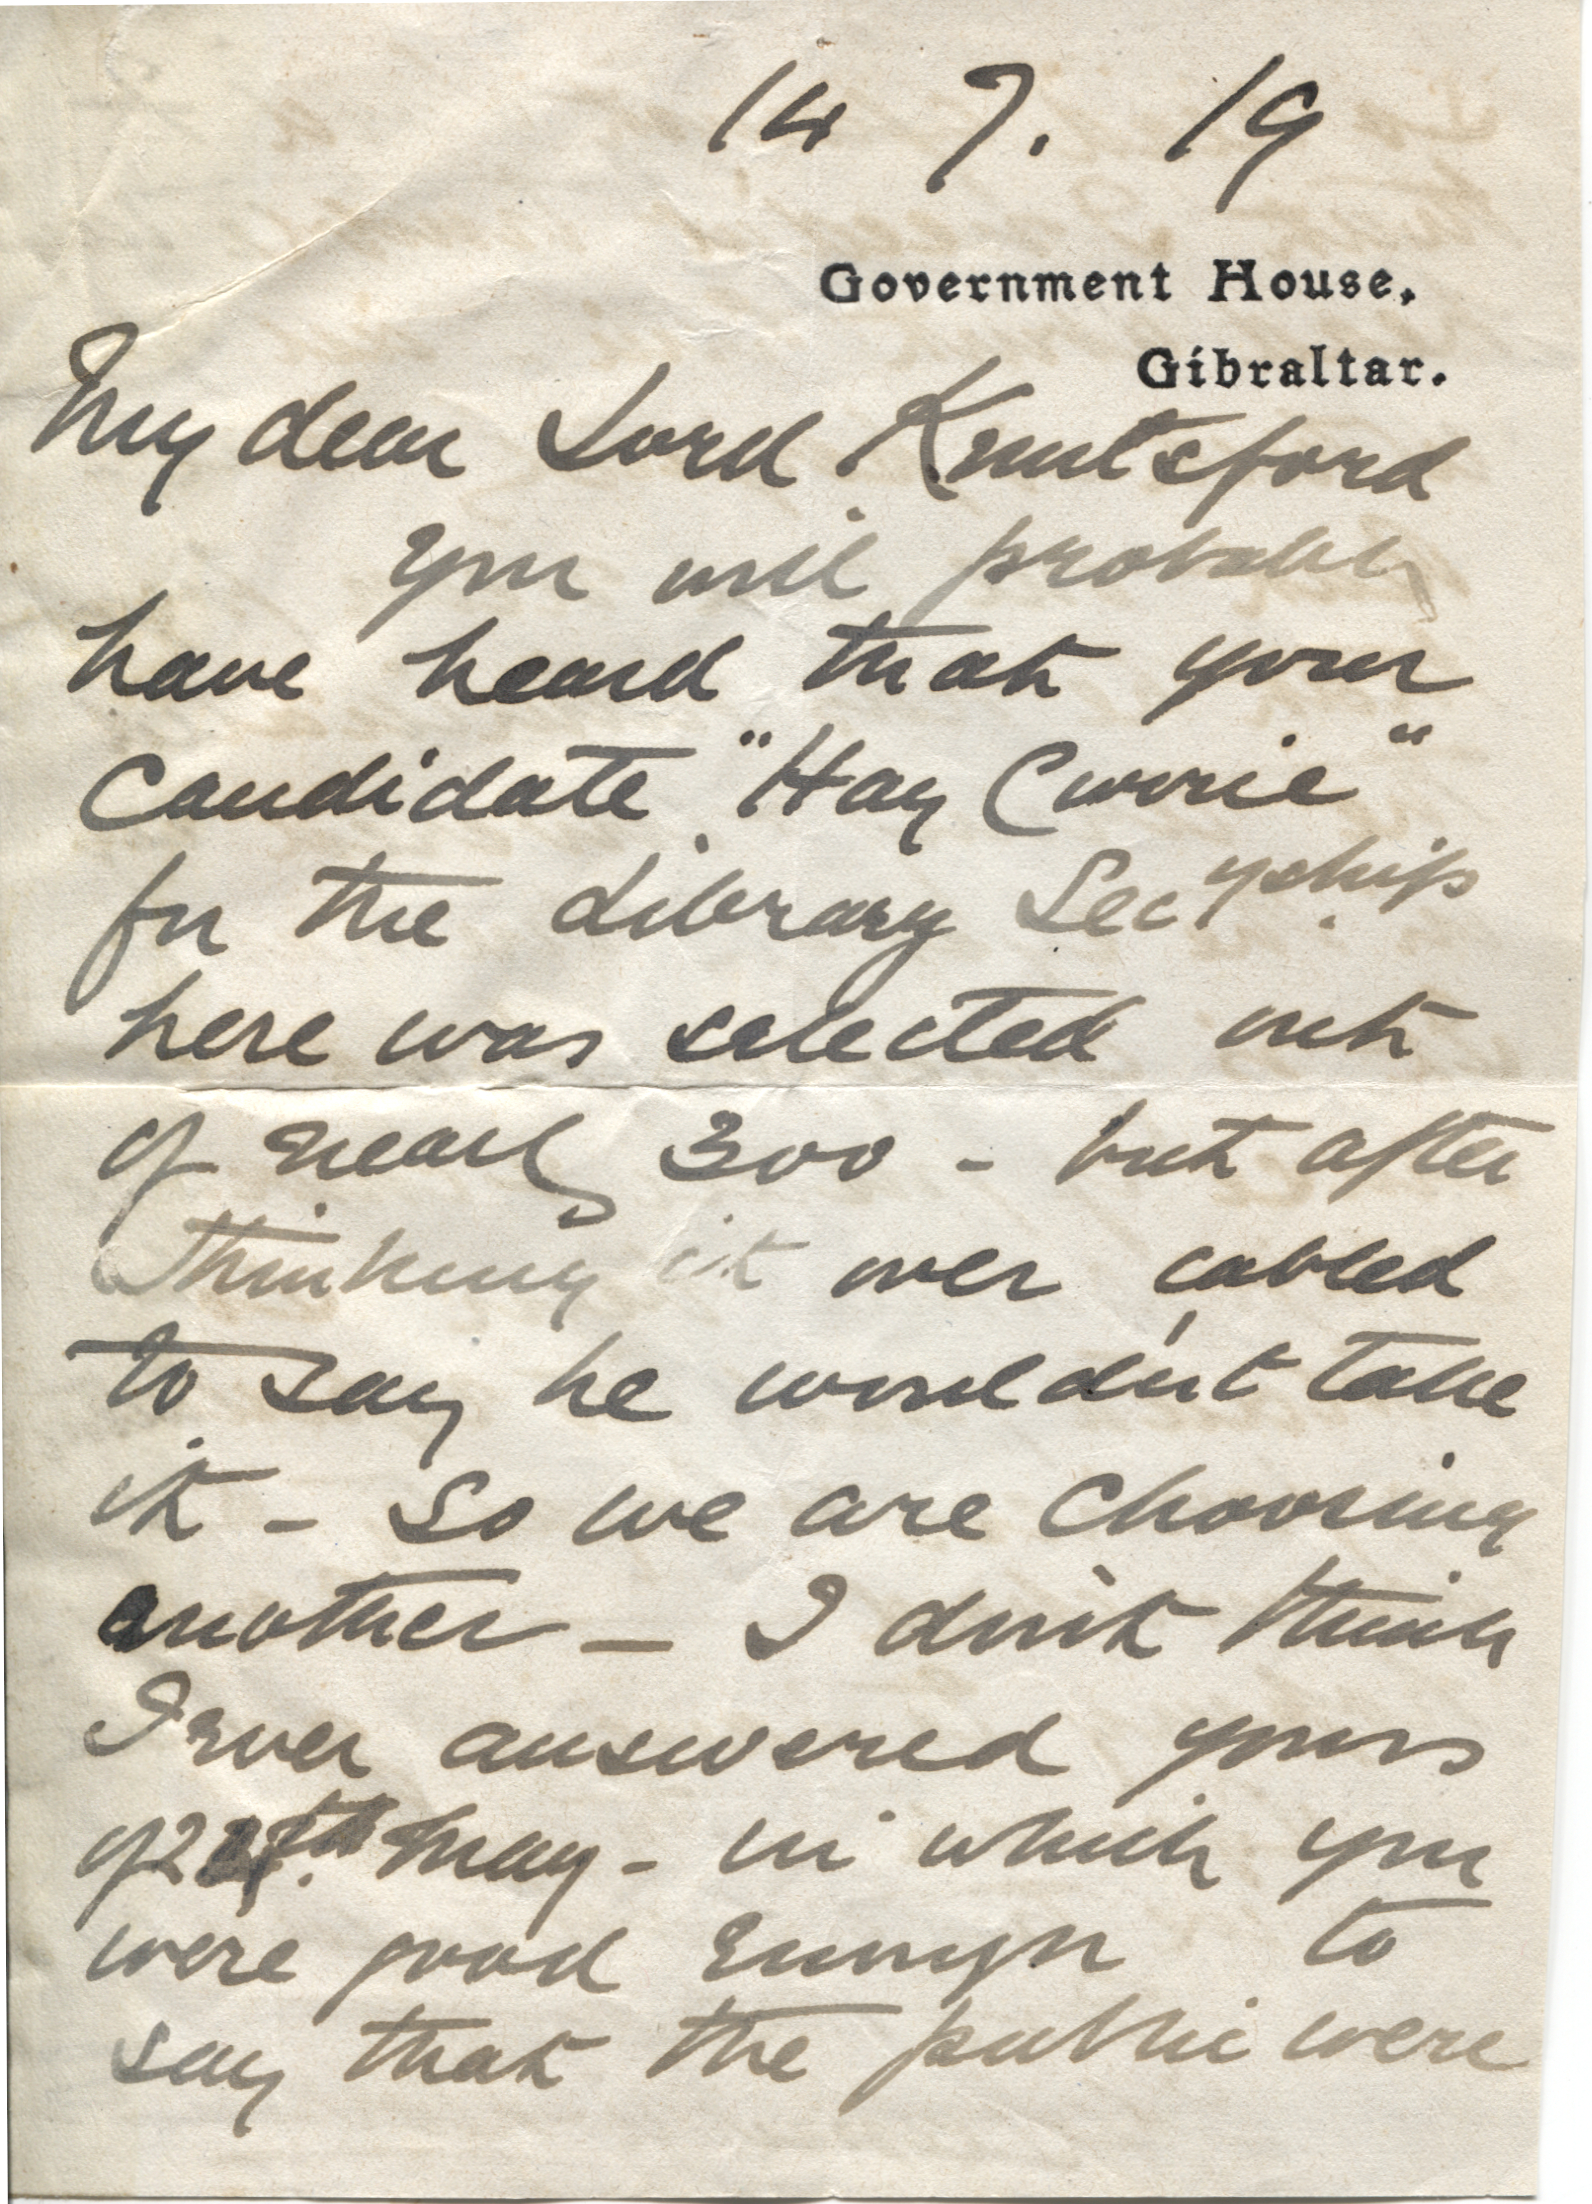 14 7. 19
Government House,
Gibraltar.
My dear Lord Knutsford
you will probably
have heard that your
Candidate "Hay Currie"
for the Library Secyship
here was selected out
of nearly 300 - but after
thinking it over cabled
to say he wouldn't take
it - So we are choosing
another - I don't think
I ever answered yours
of May - in which you
were good enough to
say that the public were